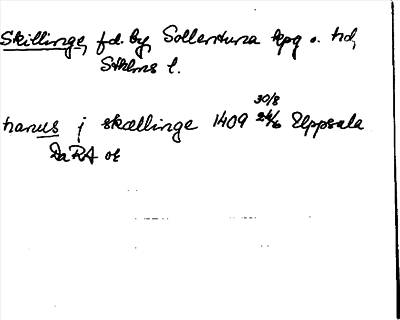 Skillinge, f.d. by, Sollentuna kpg o. hd,
Sthlms l.
30/8
hanus j skællinge 1409 24/6 Uppsala
DaRA or